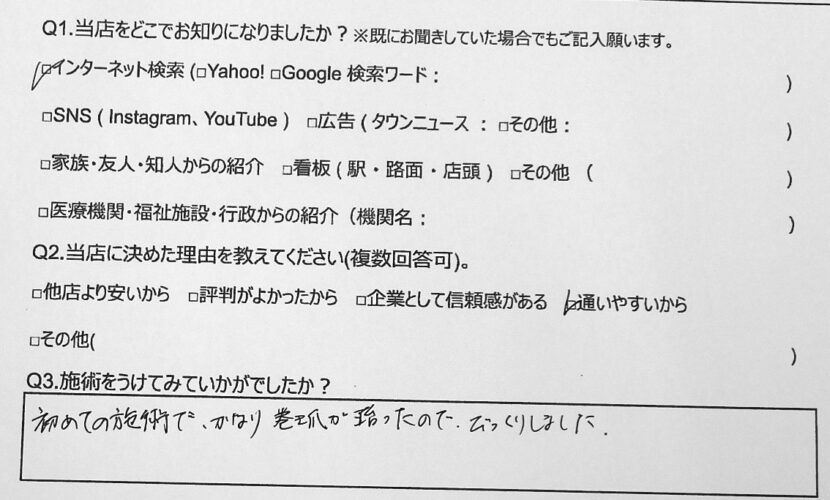 Q1.当店をどこでお知りになりましたか？※既にお聞きしていた場合でもご記入願います。
☑インターネット検索 (□Yahoo! □Google 検索ワード： )
□SNS ( Instagram、YouTube ) □広告 ( タウンニュース ： □その他： )
□家族・友人・知人からの紹介 □看板 ( 駅・路面・店頭 ) □その他 ( )
□医療機関・福祉施設・行政からの紹介 (機関名： )
Q2.当店に決めた理由を教えてください(複数回答可)。
□他店より安いから □評判がよかったから □企業として信頼感がある ☑通いやすいから
□その他( )
Q3.施術をうけてみていかがでしたか？
初めての施術で、かなり巻爪が治ったので、びっくりしました.